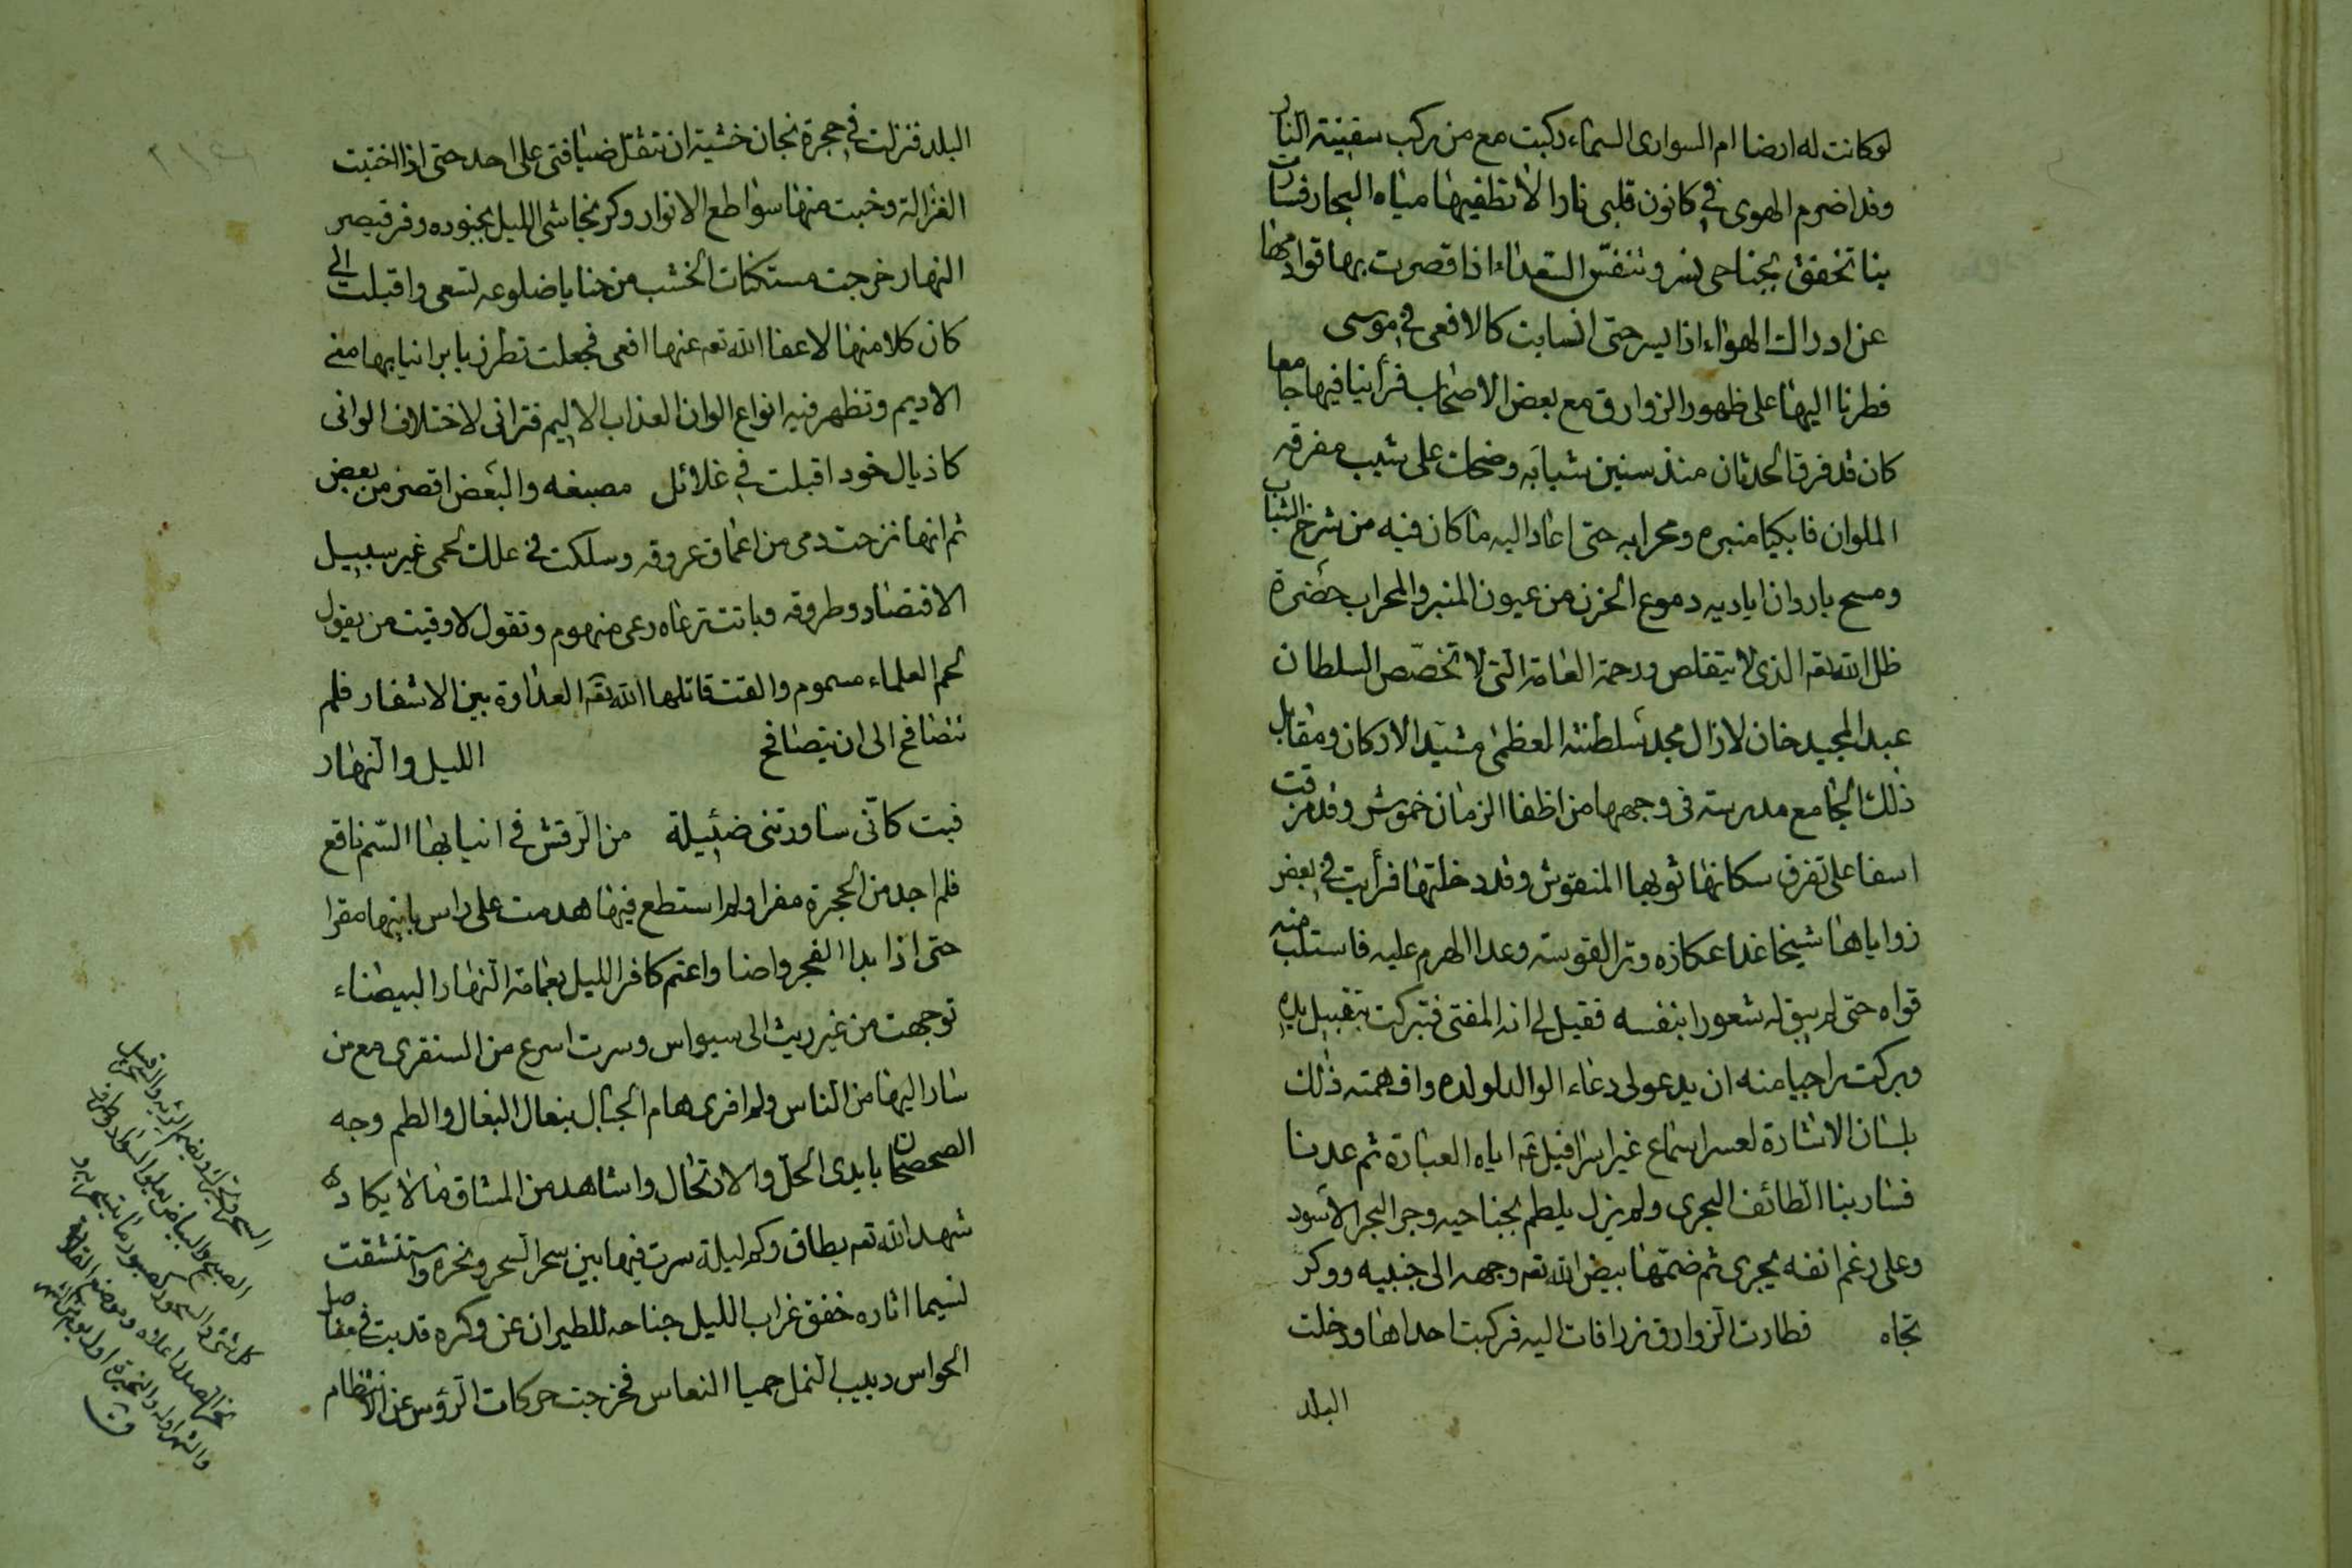 لوكانت له ارضا ام السوارى السماء ركبت مع من ركب سفينة النار
وقد اضرم الهوى في كانون قلبى نارا لا تطفيها مياه البحار فسارت
بنا تخفق بجناحى نسر وتنفس الصعداء اذا قصرت بها قوادمها
عن ادراك الهواء اذا يسر حتى انسابت كالافعى في موسى
فطرنا اليها على ظهور الزوارق مع بعض الاصحاب فرأينا فيها جامعا
كان قد فرق الحدثان منذ سنين شبابه وضحك على شيب مفرقه
الملوان فابكيا منبره ومحرابه حتى اعاد اليه ما كان فيه من شرخ الشباب
ومسح باردان اياديه دموع الحزن من عيون المنبر والمحراب حضرة
ظل الله تعه الذى لا يتقلص ورحمة العامة التى لا تخصص السلطان
عبد المجيد خان لا زال مجد سلطنته العظمى مشيد الاركان ومقابل
ذلك الجامع مدرسة فى وجهها من اظفا الزمان خموش وقد مزقت
اسفا على تفرق سكانها ثوبها المنقوش وقد دخلتها فرأيت في بعض
زواياها شيخا غدا عكازه وترا لقوسه وعدا الهرم عليه فاستلب منه
قواه حتى لم يبق له شعورا بنفسه فقيل لى انه المفتى فتبركت بتقبيل يده
وبركت راجيا منه ان يدعو لى دعاء الوالد لولده وافهمته ذلك
بلسان الاشارة لعسر اسماع غير اسرافيل عه اياه العبارة ثم عدنا
فسار بنا الطائف البحرى ولم يزل يلطم بجناحيه وجه البحر الاسود
وعلى رغم انفه يجرى ثم ضمها بيض الله تعه وجهه الى جنبيه ووكر
تجاه فطارت الزوارق زرافات اليه فركبت احداها ودخلت
البلد
البلد فنزلت في حجرة نجان خشية ان تثقل ضيافتى على احد حتى اذا اختبت
الغزالة وخبت منها سواطع الانوار وكر نجاشى الليل بجنوده وفر قيصر
النهار خرجت مستكنات الخشب من حنايا ضلوعه تسعى واقبلت الى
كان كلا منها لا عفا الله تعه عنها افعى فجعلت تطرز بابر انيابها منى
الاديم وتظهر فيه انواع الوان العذاب الاليم فترانى لاختلاف الوانى
كاذيال خود اقبلت في غلائل مصبغه والبعض اقصر من بعض
ثم انها نزحت دمى من اعماق عروقه وسلكت في علك لحمى غير سبيل
الاقتصاد وطروقه وباتت ترعاه رعى منهوم وتقول لا وقيت من يقول
لحم العلماء مسموم والقت قاتلها الله تعه العداوة بين الاشفار فلم
تتصافح الى ان يتصافح الليل والنهار
فبت كأنى ساورتنى ضئيلة من الرقش في انيابها السم ناقع
فلم اجد من الحجرة مفرا ولم استطع فيها هدمت على راس بانيها مقرا
حتى اذا بدا الفجر واضا واعتم كافر الليل بعمامة النهار البيضاء
توجهت من غير ريث الى سيواس وسرت اسرع من السنفرى مع من
سار اليها من الناس ولم افرى هام الجبال بنعال البغال والطم وجه
الصحصحان بايدى الحل والارتحال واشاهد من المشاق ما لا يكاد
شهد الله تعه يطاق وكم ليلة سرت فيها بين سحر السحر ونحره واستنشقت
نسيما اثاره خفق غراب الليل جناحه للطيران عن وكره قد دبت في مفاصل
الحواس دبيب النمل حميا النعاس فخرجت حركات الرؤس عن الانتظام